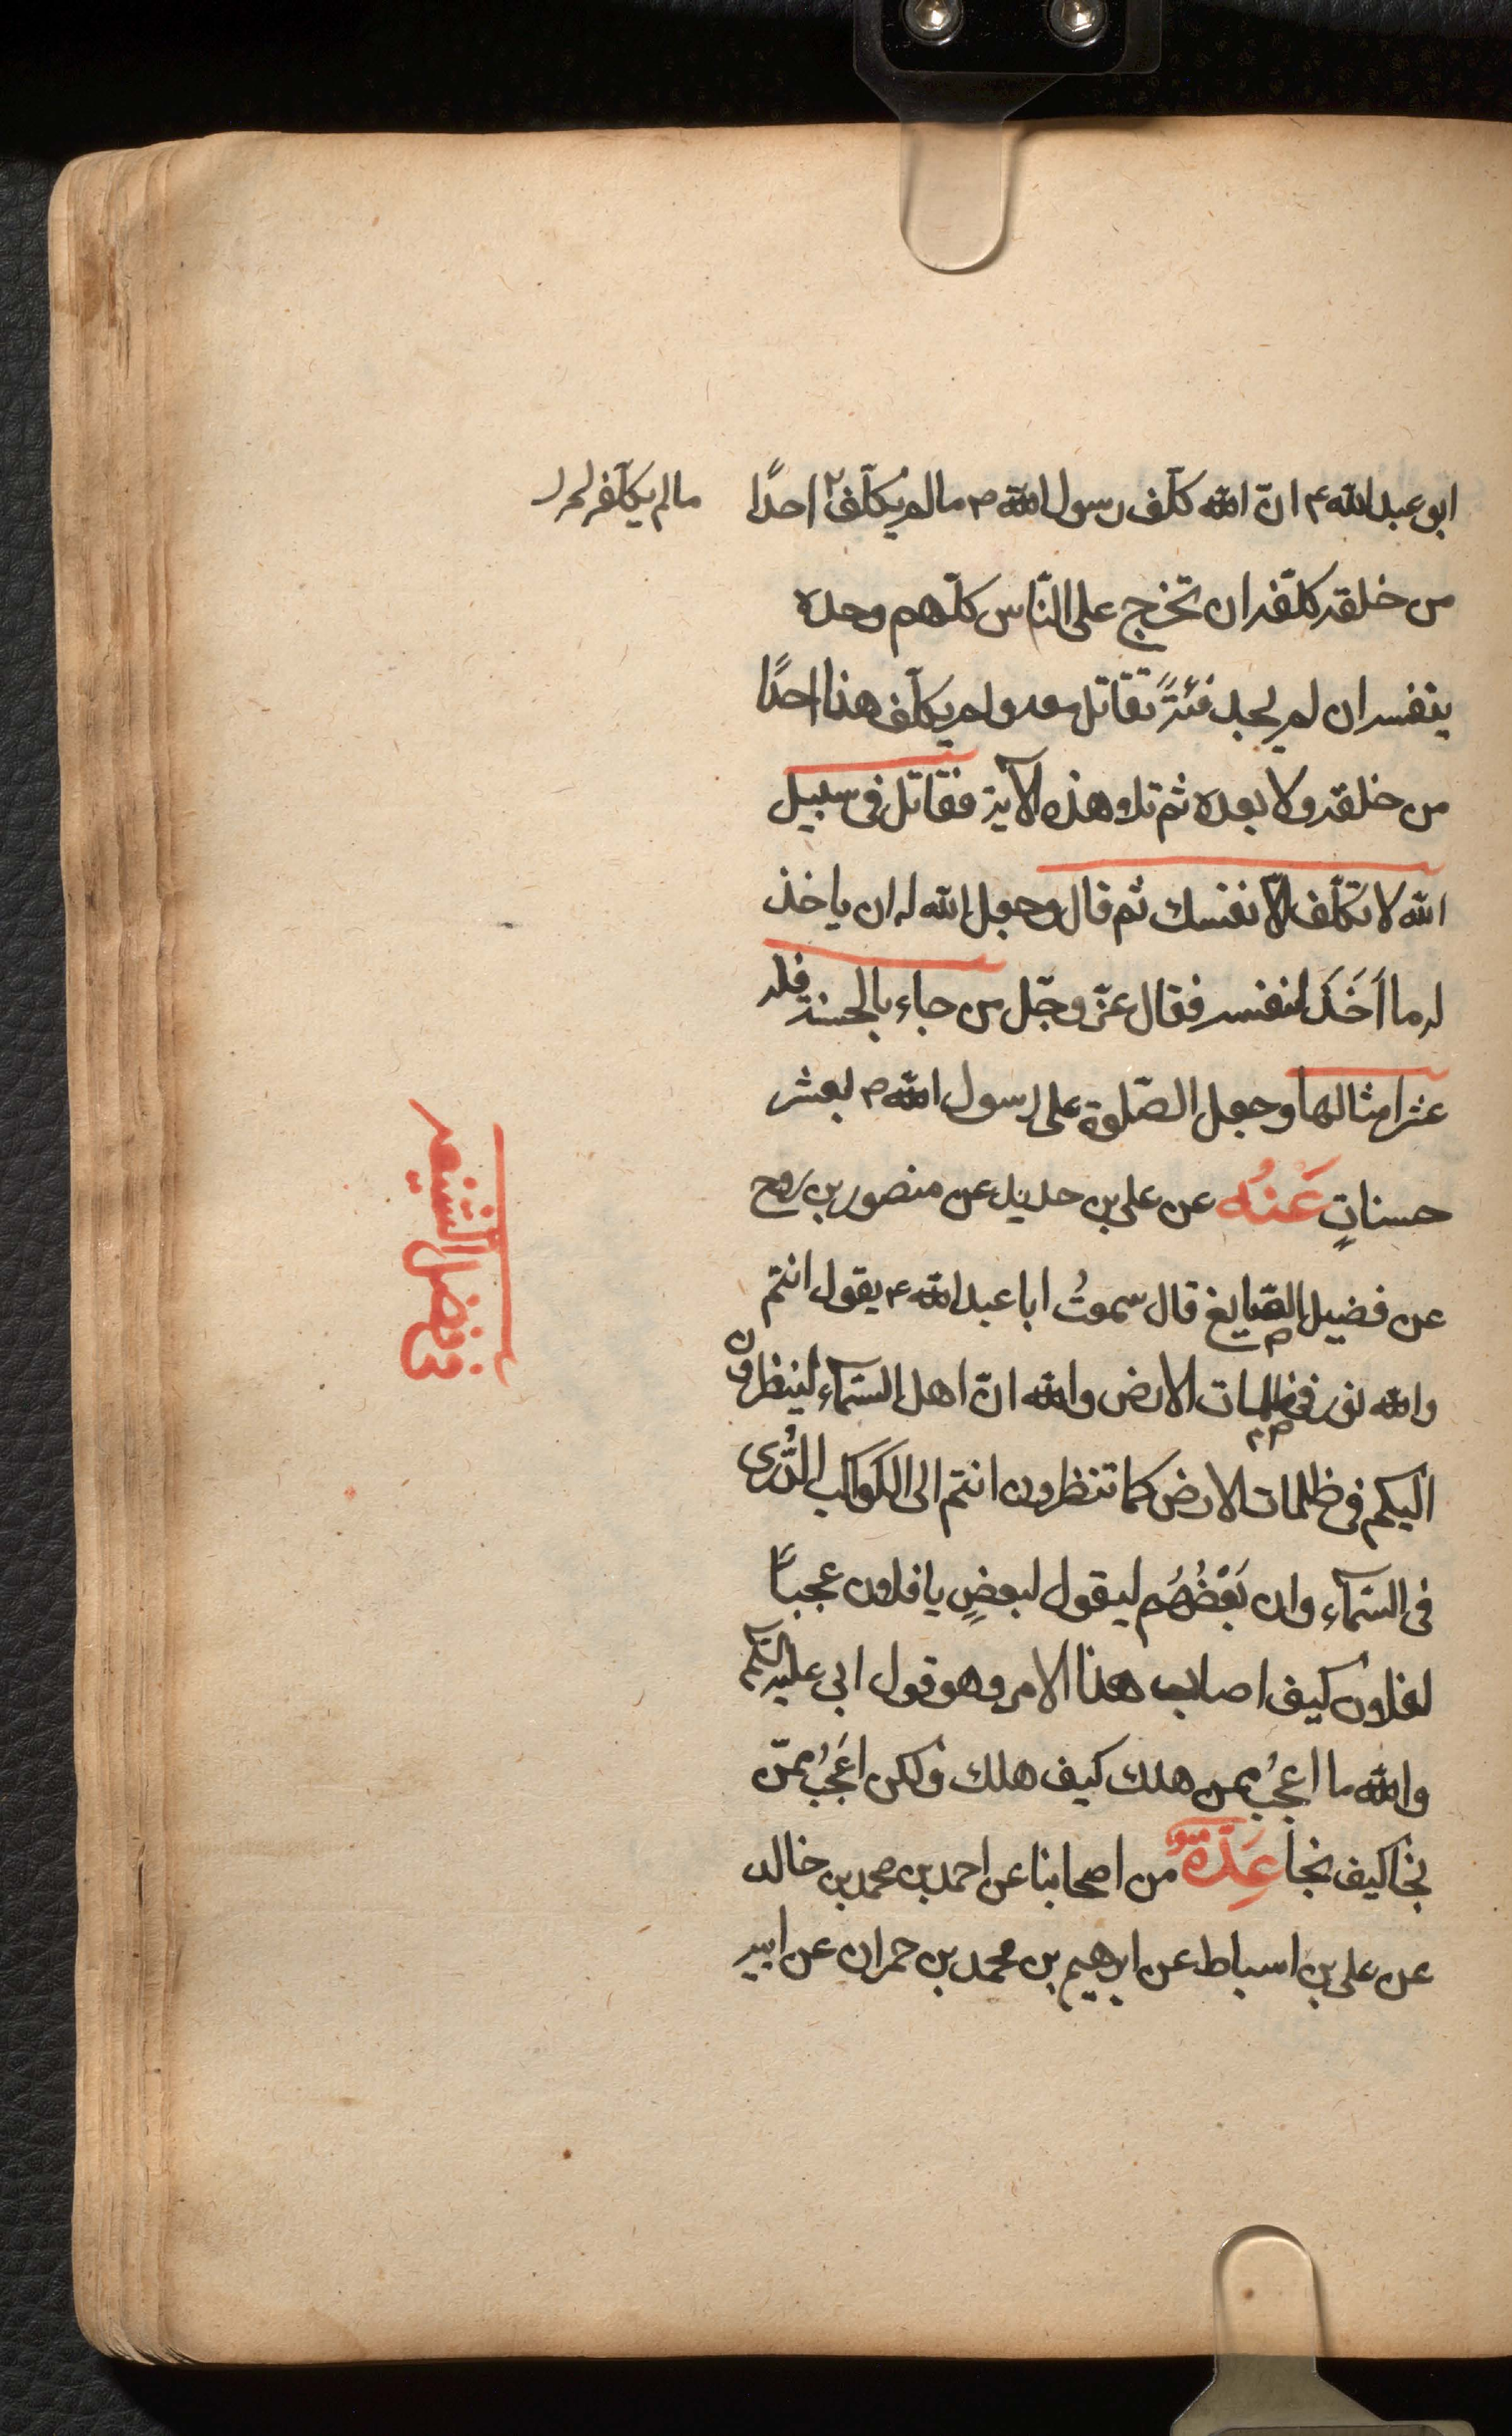 ابو عبد الله ع ان‍ّ الله كلّف رسول الله ص ما لم يكلّف احدًا
ما لم يكلّفه لم
من خلقه كلّفه ان تخرج على النّاس كلّهم وحده
بنفسه ان لم يجد فئةً تقاتل معه ولم يكلّف هذا احدًا
من خلقه ولا بعده ثم تلا هذه الآية فقاتل فى سبيل
الله لا تكلّف الّا نفسك ثم قال وجعل الله له ان ياخذ
له ما اَخَذَ لنفسه فقال عزّ وجّل من جاء بالحسنة فله
عشر امثالها وجعل الصّلوة على رسول الله ص بعشر
حسناتٍ عَنْهُ عن على بن حديد عن منصور بن روح
عن فضيل الصّايغ قال سمعتُ ابا عبد الله ع يقول انتم
والله نور فى ظلمات الارض والله انّ اهل السّمآء لينظرون
اليكم فى ظلمات الارض كما تنظرون انتم الى الكوكب الدُّرى
فى السّمآء وان بَعْضُهُم ليقول لبعضٍ يا فلان عجباً
لفلان كيف اصاب هذا الامر وهو قول ابى عليه السّلم
والله ما اعجبُ ممن هلك كيف هلك ولكن اعَجبُ ممّن
نجا كيف نجا عِدّةٌ من اصحابنا عن احمد بن محمد بن خالد
عن على بن اسباط عن ابرهيم بن محمد بن حمران عن ابيه
فى فضل الشيعه